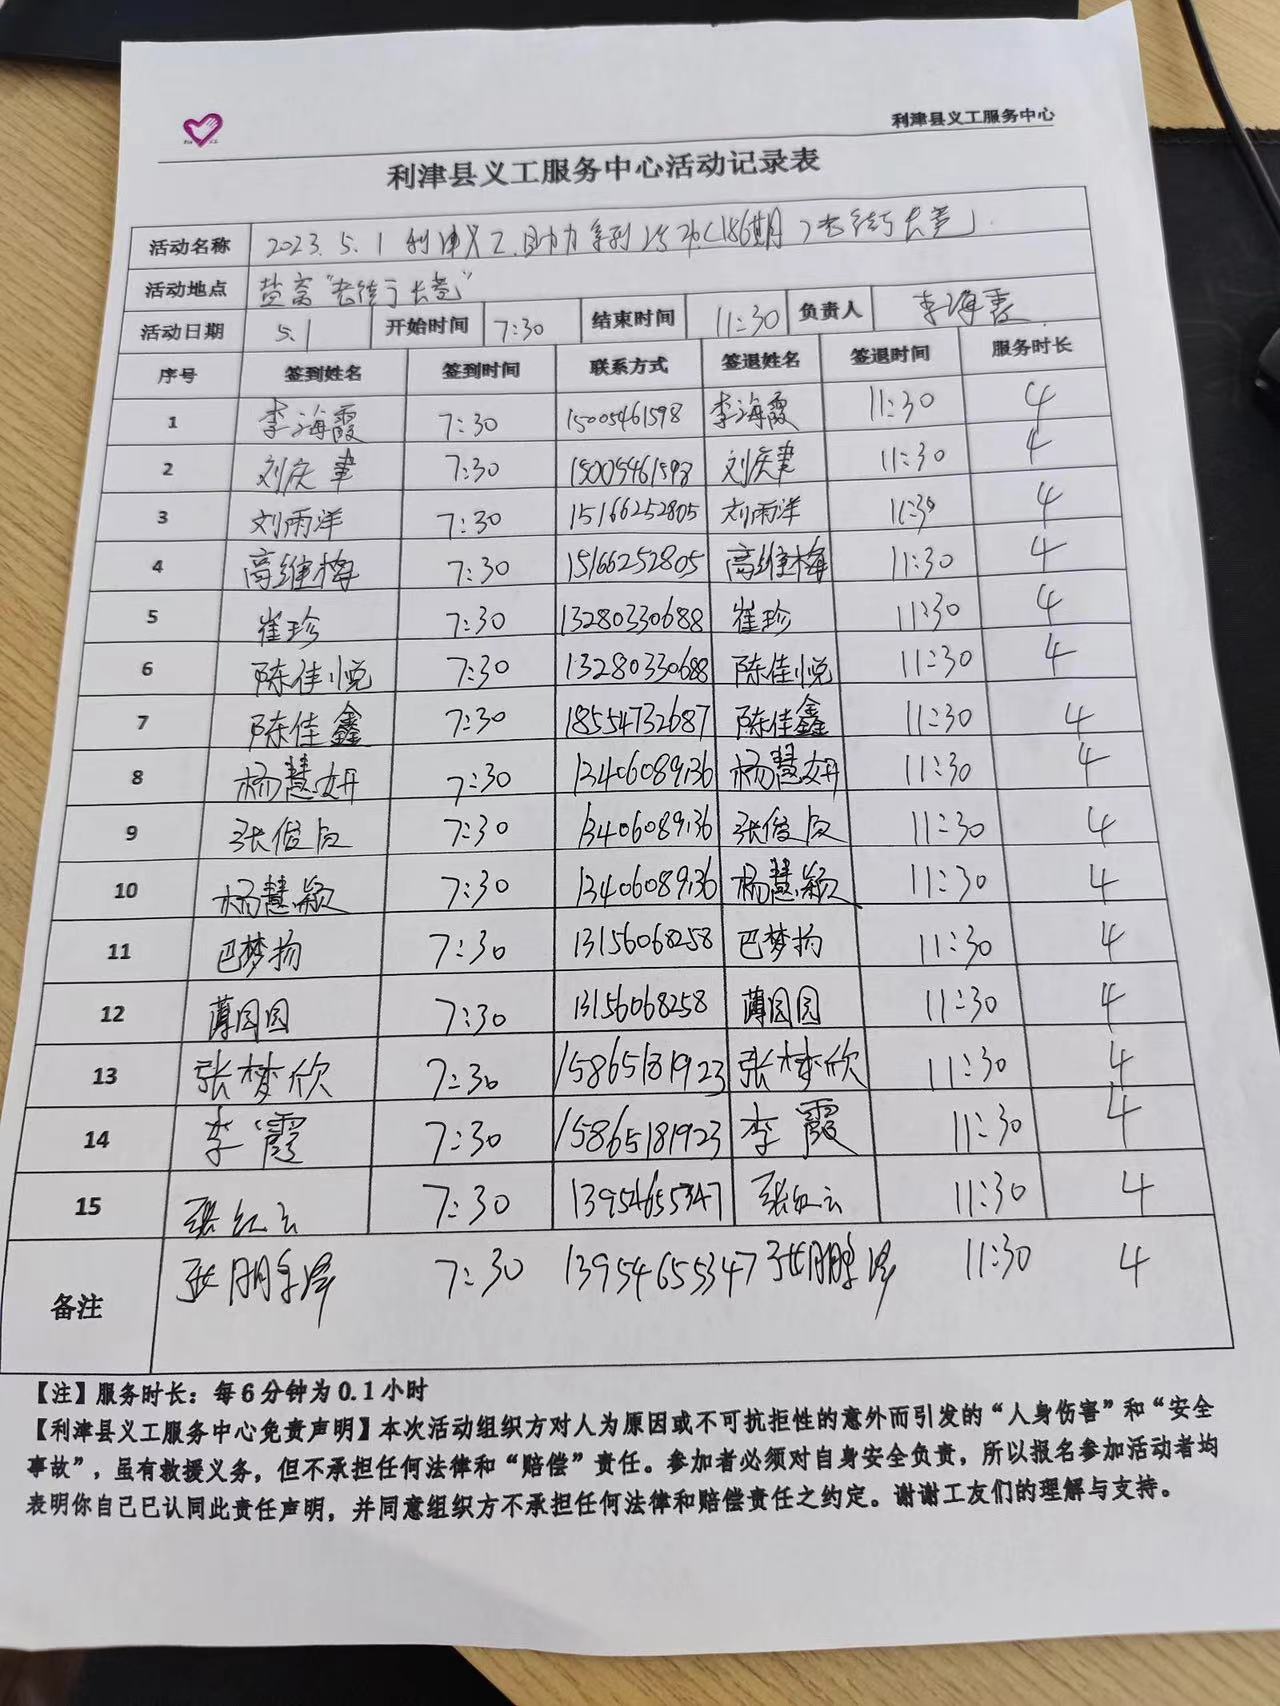 利津县义工服务中心
利津县义工服务中心活动记录表
活动名称 2023.5.1 利津义工助力系列活动(186期)老街长巷」
活动地点 盐窝"老街子长巷"
活动日期 5.1 开始时间 7:30 结束时间 11:30 负责人 李海霞
序号 签到姓名 签到时间 联系方式 签退姓名 签退时间 服务时长
1 李海霞 7:30 15005461598 李海霞 11:30 4
2 刘庆聿 7:30 15005461598 刘庆聿 11:30 4
3 刘雨洋 7:30 15166252805 刘雨洋 11:30 4
4 高维梅 7:30 15166252805 高维梅 11:30 4
5 崔珍 7:30 13280330688 崔珍 11:30 4
6 陈佳悦 7:30 13280330688 陈佳悦 11:30 4
7 陈佳鑫 7:30 18554732687 陈佳鑫 11:30 4
8 杨慧妍 7:30 13406089136 杨慧妍 11:30 4
9 张俊贞 7:30 13406089136 张俊贞 11:30 4
10 杨慧颖 7:30 13406089136 杨慧颖 11:30 4
11 巴梦扬 7:30 13156068258 巴梦扬 11:30 4
12 薄园园 7:30 13156068258 薄园园 11:30 4
13 张梦欣 7:30 15865181923 张梦欣 11:30 4
14 李霞 7:30 15865181923 李霞 11:30 4
15 张红云 7:30 13954655347 张红云 11:30 4
备注 张鹏泽 7:30 13954655347 张鹏泽 11:30 4
【注】服务时长：每6分钟为0.1小时
【利津县义工服务中心免责声明】本次活动组织方对人为原因或不可抗拒性的意外而引发的“人身伤害”和“安全
事故”，虽有救援义务，但不承担任何法律和“赔偿”责任。参加者必须对自身安全负责，所以报名参加活动者均
表明你自己已认同此责任声明，并同意组织方不承担任何法律和赔偿责任之约定。谢谢工友们的理解与支持。